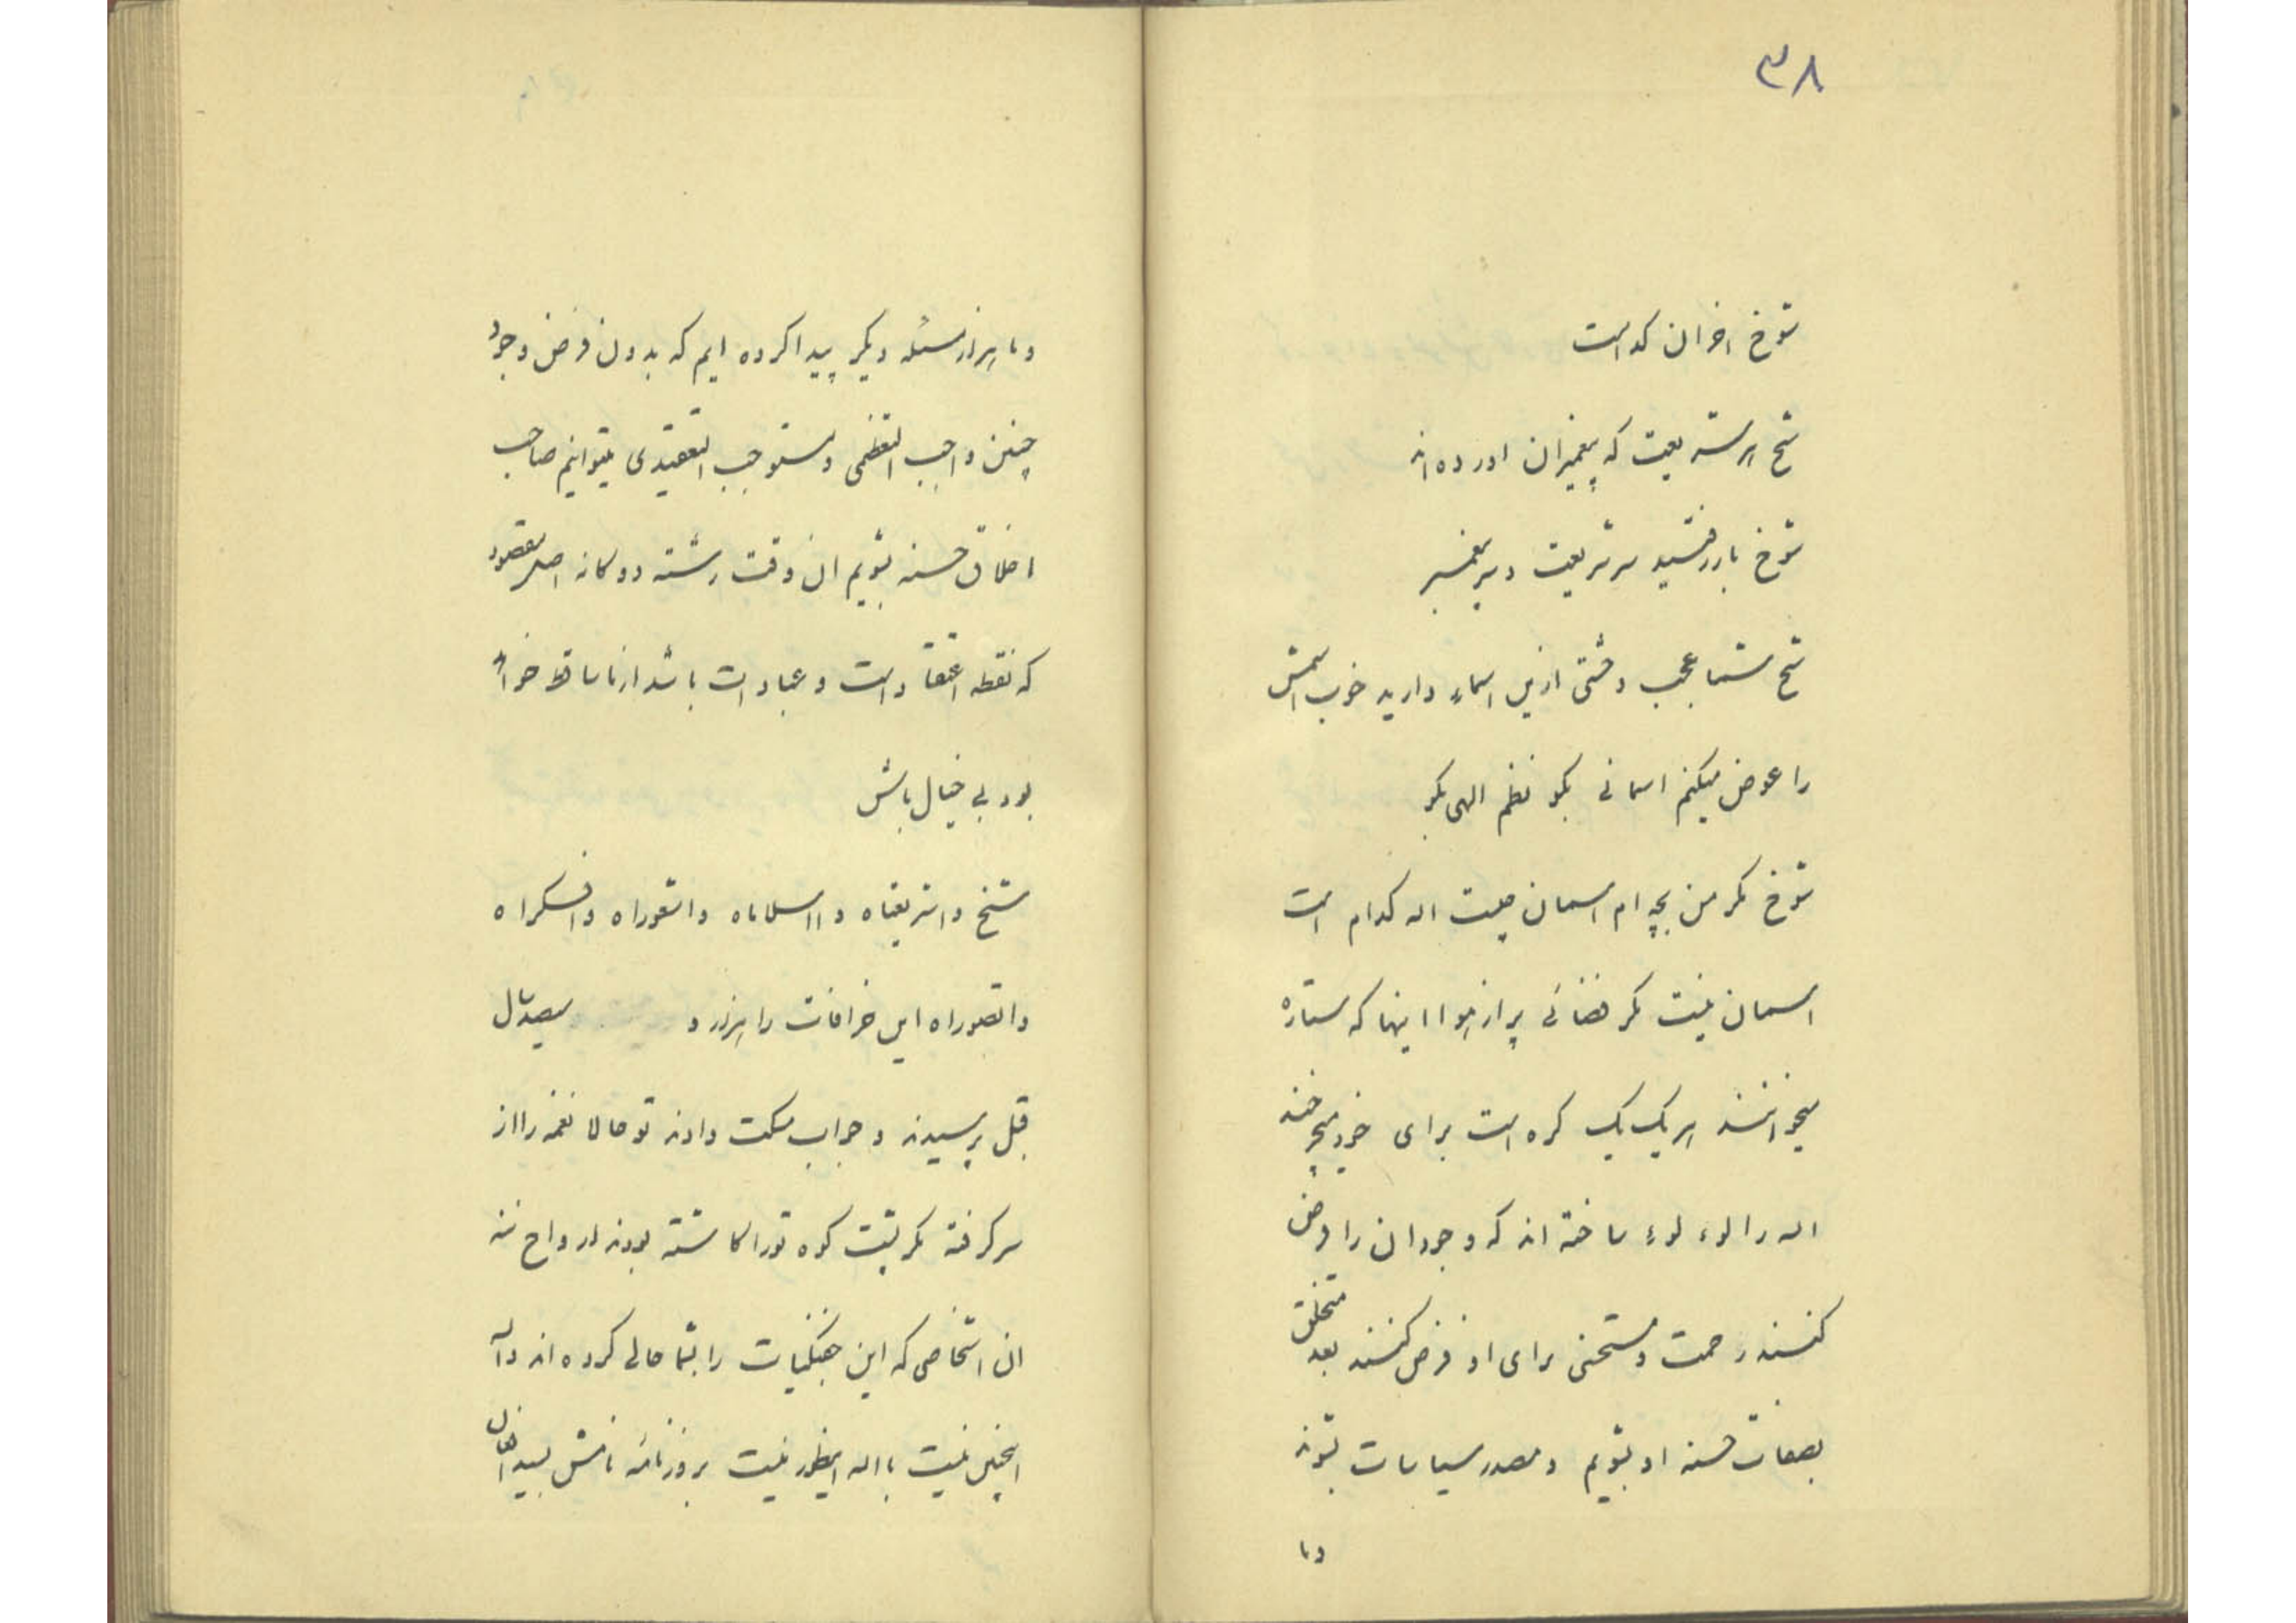 ۳۸
شوخ اخر ان کدامست
شیخ هر شریعت که پیغمبران اورده اند
شوخ بر شریعت و بر پیغمبر
شیخ شما عجب وحشتی ازین اسماء دارید خوب اسمش
را عوض میکنم اسمانی بگو نظم الهی بگو
شوخ مگر من بچه ام اسمان چیست اله کدام است
اسمان نیست مگر فضائی پر از هوا اینها که ستاره
میخوانند هر یک یک کره است برای خود میچرخند
اله را لوء لوء ساخته اند که وجود ان را فرض
کنند رحمت و برای او فرض کنند بعد متخلق
بصفات حسنه او بشویم و مصدر سیاسات بشوند
وما
وما هزار مسئله دیگر پیدا کرده ایم که بدون فرض وجود
چنین واجب التعظیمی و مستوجب میتوانیم صاحب
اخلاق حسنه بشویم ان وقت رشته دوکانه اصل مقصود
که نقطه اعتقاد است و عبادات باشد از ما ساقط خواهد
بود بی خیال باش
شیخ واشریعتاه و ااسلاماه واشعوراه وافکراه
واتصوراه این خرافات را هزار و سیصد سال
قبل پرسیدند و جواب مسکت دادند تو حالا نغمه را از
سر گرفته مگر پشت کوه تو را کاشته بودند ارواح ننه
ان اشخاصی که این جفنگیات را بشما حالی کرده اند واله
اینچنین نیست بااله اینطور نیست بروزنامه